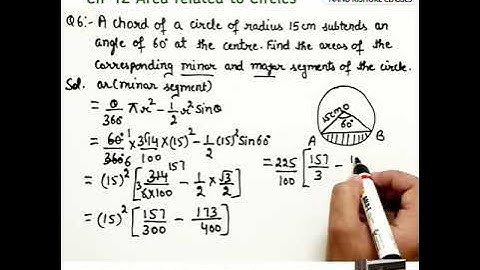 Ch-12 Area related to Circles
NAND KISHORE CLASSES
Q6:- A chord of a circle of radius 15cm subtends an
angle of 60° at the centre. Find the areas of the
corresponding minor and major segments of the circle.
Sol. ar(minor segment)
= θ/360 πr² - 1/2 r² sinθ
= 60°/360° 1 6 × 3.14/100 × (15)² - 1/2 (15)² sin60°
= (15)² [314/6×100 157 3 - 1/2 × √3/2]
= (15)² [157/300 - 173/400]
= 225/100 [157/3 - 1
15cm O
60°
A
B